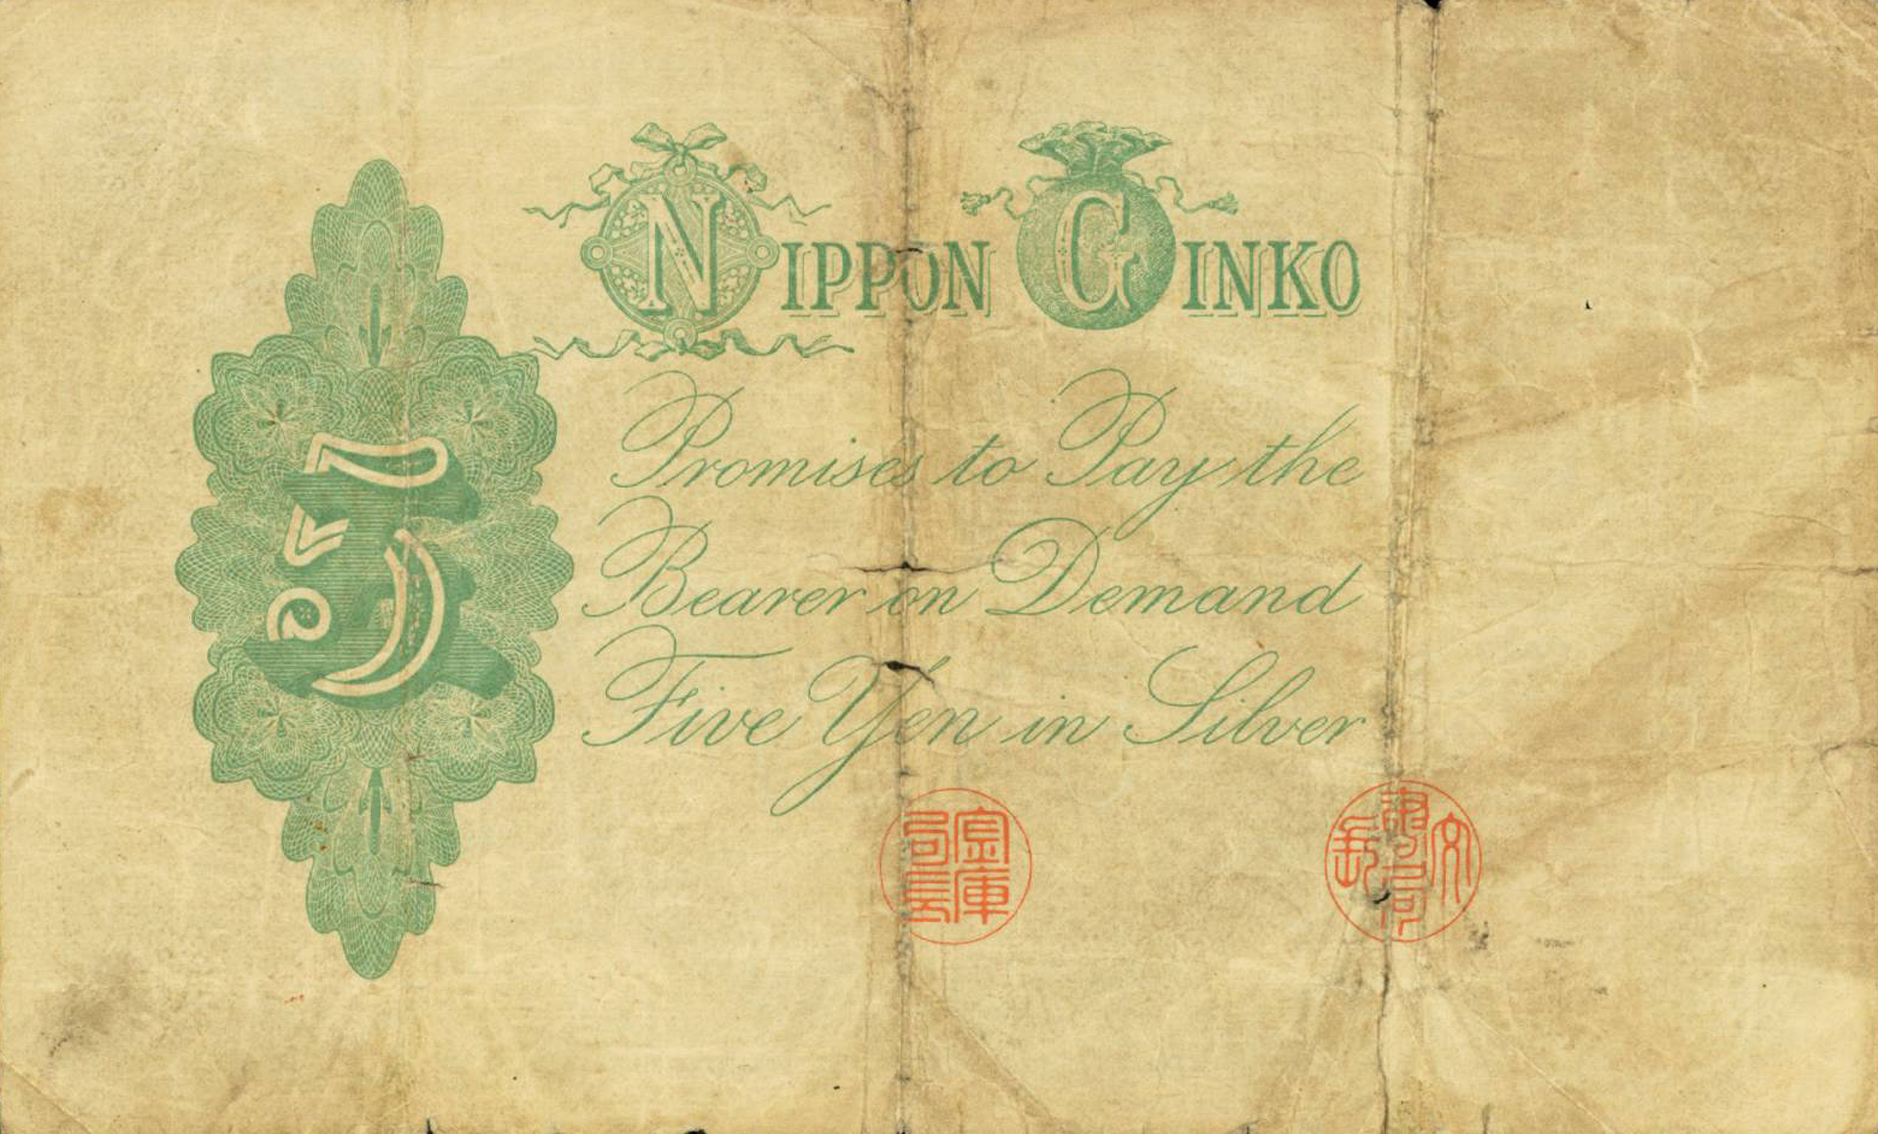 NIPPON GINKO
5
Promises to Pay the
Bearer on Demand
Five Yen in Silver
金庫局長
文書局長